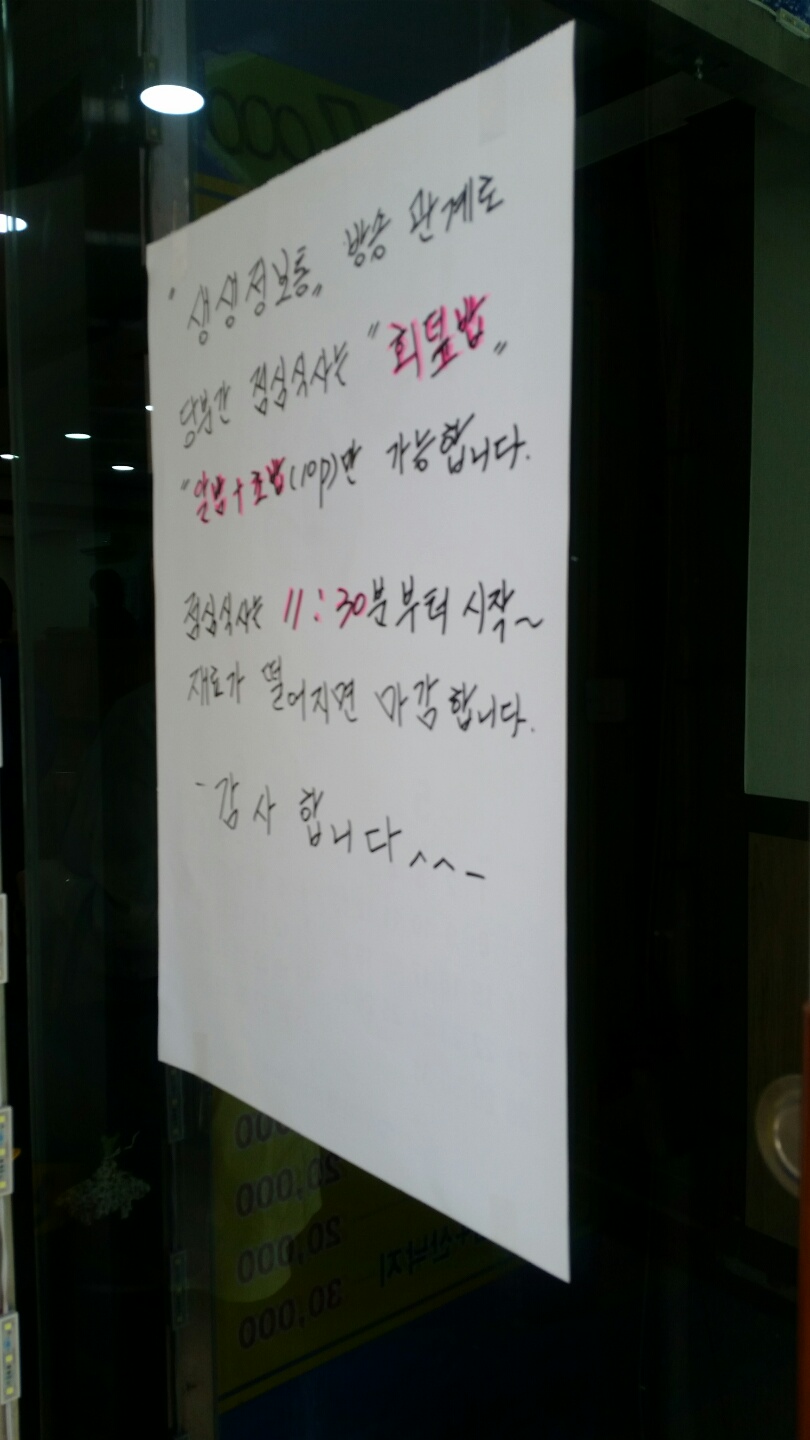 "생생정보통" 방송 관계로
당분간 점심식사는 "회덮밥"
"알밥+초밥(10p)만 가능합니다.
점심식사는 11:30분부터 시작~
재료가 떨어지면 마감합니다.
-감사합니다^^-
7,000
20,000
20,000
30,000
산낙지